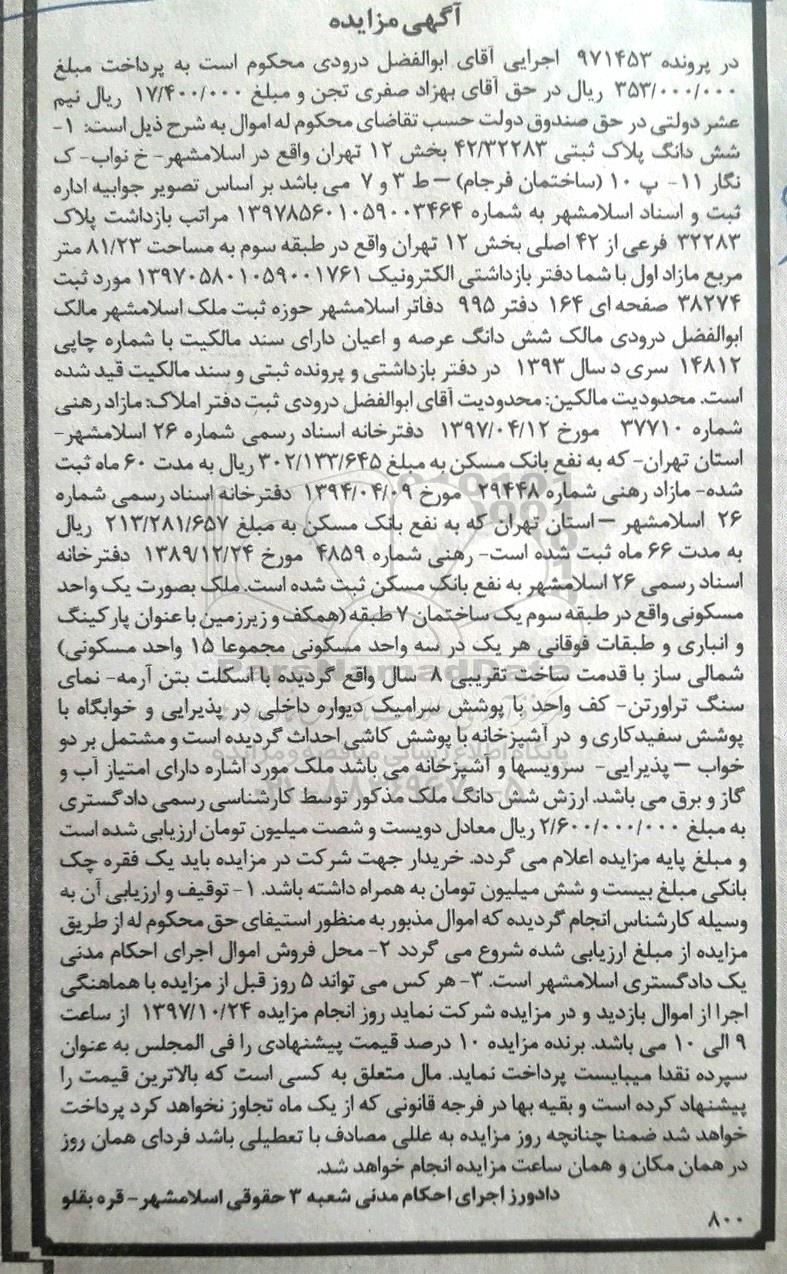 آگهی مزایده
در پرونده ۹۷۱۴۵۳ اجرایی آقای ابوالفضل درودی محکوم است به پرداخت مبلغ
۳۵۳/۰۰۰/۰۰۰ ریال در حق آقای بهزاد صفری تجن و مبلغ ۱۷/۴۰۰/۰۰۰ ریال نیم
عشر دولتی در حق صندوق دولت حسب تقاضای محکوم له اموال به شرح ذیل است: ۱-
شش دانگ پلاک ثبتی ۴۲/۳۲۲۸۳ بخش ۱۲ تهران واقع در اسلامشهر- خ نواب- ک
نگار ۱۱- پ ۱۰ (ساختمان فرجام) – ط ۳ و ۷ می باشد بر اساس تصویر جوابیه اداره
ثبت و اسناد اسلامشهر به شماره ۱۳۹۷۸۵۶۰۱۰۵۹۰۰۳۴۶۴ مراتب بازداشت پلاک
۳۲۲۸۳ فرعی از ۴۲ اصلی بخش ۱۲ تهران واقع در طبقه سوم به مساحت ۸۱/۲۳ متر
مربع مازاد اول با شما دفتر بازداشتی الکترونیک ۱۳۹۷۰۵۸۰۱۰۵۹۰۰۱۷۶۱ مورد ثبت
۳۸۲۷۴ صفحه ای ۱۶۴ دفتر ۹۹۵ دفاتر اسلامشهر حوزه ثبت ملک اسلامشهر مالک
ابوالفضل درودی مالک شش دانگ عرصه و اعیان دارای سند مالکیت با شماره چاپی
۱۴۸۱۲ سری د سال ۱۳۹۳ در دفتر بازداشتی و پرونده ثبتی و سند مالکیت قید شده
است. محدودیت مالکین: محدودیت آقای ابوالفضل درودی ثبت دفتر املاک: مازاد رهنی
شماره ۳۷۷۱۰ مورخ ۱۳۹۷/۰۴/۱۲ دفترخانه اسناد رسمی شماره ۲۶ اسلامشهر-
استان تهران- که به نفع بانک مسکن به مبلغ ۳۰۲/۱۳۳/۶۴۵ ریال به مدت ۶۰ ماه ثبت
شده- مازاد رهنی شماره ۲۹۴۴۸ مورخ ۱۳۹۴/۰۴/۰۹ دفترخانه اسناد رسمی شماره
۲۶ اسلامشهر – استان تهران که به نفع بانک مسکن به مبلغ ۲۱۳/۲۸۱/۶۵۷ ریال
به مدت ۶۶ ماه ثبت شده است- رهنی شماره ۴۸۵۹ مورخ ۱۳۸۹/۱۲/۲۴ دفترخانه
اسناد رسمی ۲۶ اسلامشهر به نفع بانک مسکن ثبت شده است. ملک بصورت یک واحد
مسکونی واقع در طبقه سوم یک ساختمان ۷ طبقه (همکف و زیرزمین با عنوان پارکینگ
و انباری و طبقات فوقانی هر یک در سه واحد مسکونی مجموعا ۱۵ واحد مسکونی)
شمالی ساز با قدمت ساخت تقریبی ۸ سال واقع گردیده با اسکلت بتن آرمه- نمای
سنگ تراورتن- کف واحد با پوشش سرامیک دیواره داخلی در پذیرایی و خوابگاه با
پوشش سفیدکاری و در آشپزخانه با پوشش کاشی احداث گردیده است و مشتمل بر دو
خواب – پذیرایی- سرویسها و آشپزخانه می باشد ملک مورد اشاره دارای امتیاز آب و
گاز و برق می باشد. ارزش شش دانگ ملک مذکور توسط کارشناسی رسمی دادگستری
به مبلغ ۲/۶۰۰/۰۰۰/۰۰۰ ریال معادل دویست و شصت میلیون تومان ارزیابی شده است
و مبلغ پایه مزایده اعلام می گردد. خریدار جهت شرکت در مزایده باید یک فقره چک
بانکی مبلغ بیست و شش میلیون تومان به همراه داشته باشد. ۱- توقیف و ارزیابی آن به
وسیله کارشناس انجام گردیده که اموال مذبور به منظور استیفای حق محکوم له از طریق
مزایده از مبلغ ارزیابی شده شروع می گردد ۲- محل فروش اموال اجرای احکام مدنی
یک دادگستری اسلامشهر است. ۳- هر کس می تواند ۵ روز قبل از مزایده با هماهنگی
اجرا از اموال بازدید و در مزایده شرکت نماید روز انجام مزایده ۱۳۹۷/۱۰/۲۴ از ساعت
۹ الی ۱۰ می باشد. برنده مزایده ۱۰ درصد قیمت پیشنهادی را فی المجلس به عنوان
سپرده نقدا میبایست پرداخت نماید. مال متعلق به کسی است که بالاترین قیمت را
پیشنهاد کرده است و بقیه بها در فرجه قانونی که از یک ماه تجاوز نخواهد کرد پرداخت
خواهد شد ضمنا چنانچه روز مزایده به عللی مصادف با تعطیلی باشد فردای همان روز
در همان مکان و همان ساعت مزایده انجام خواهد شد.
دادورز اجرای احکام مدنی شعبه ۳ حقوقی اسلامشهر- قره بقلو
۸۰۰
ParsNamadData